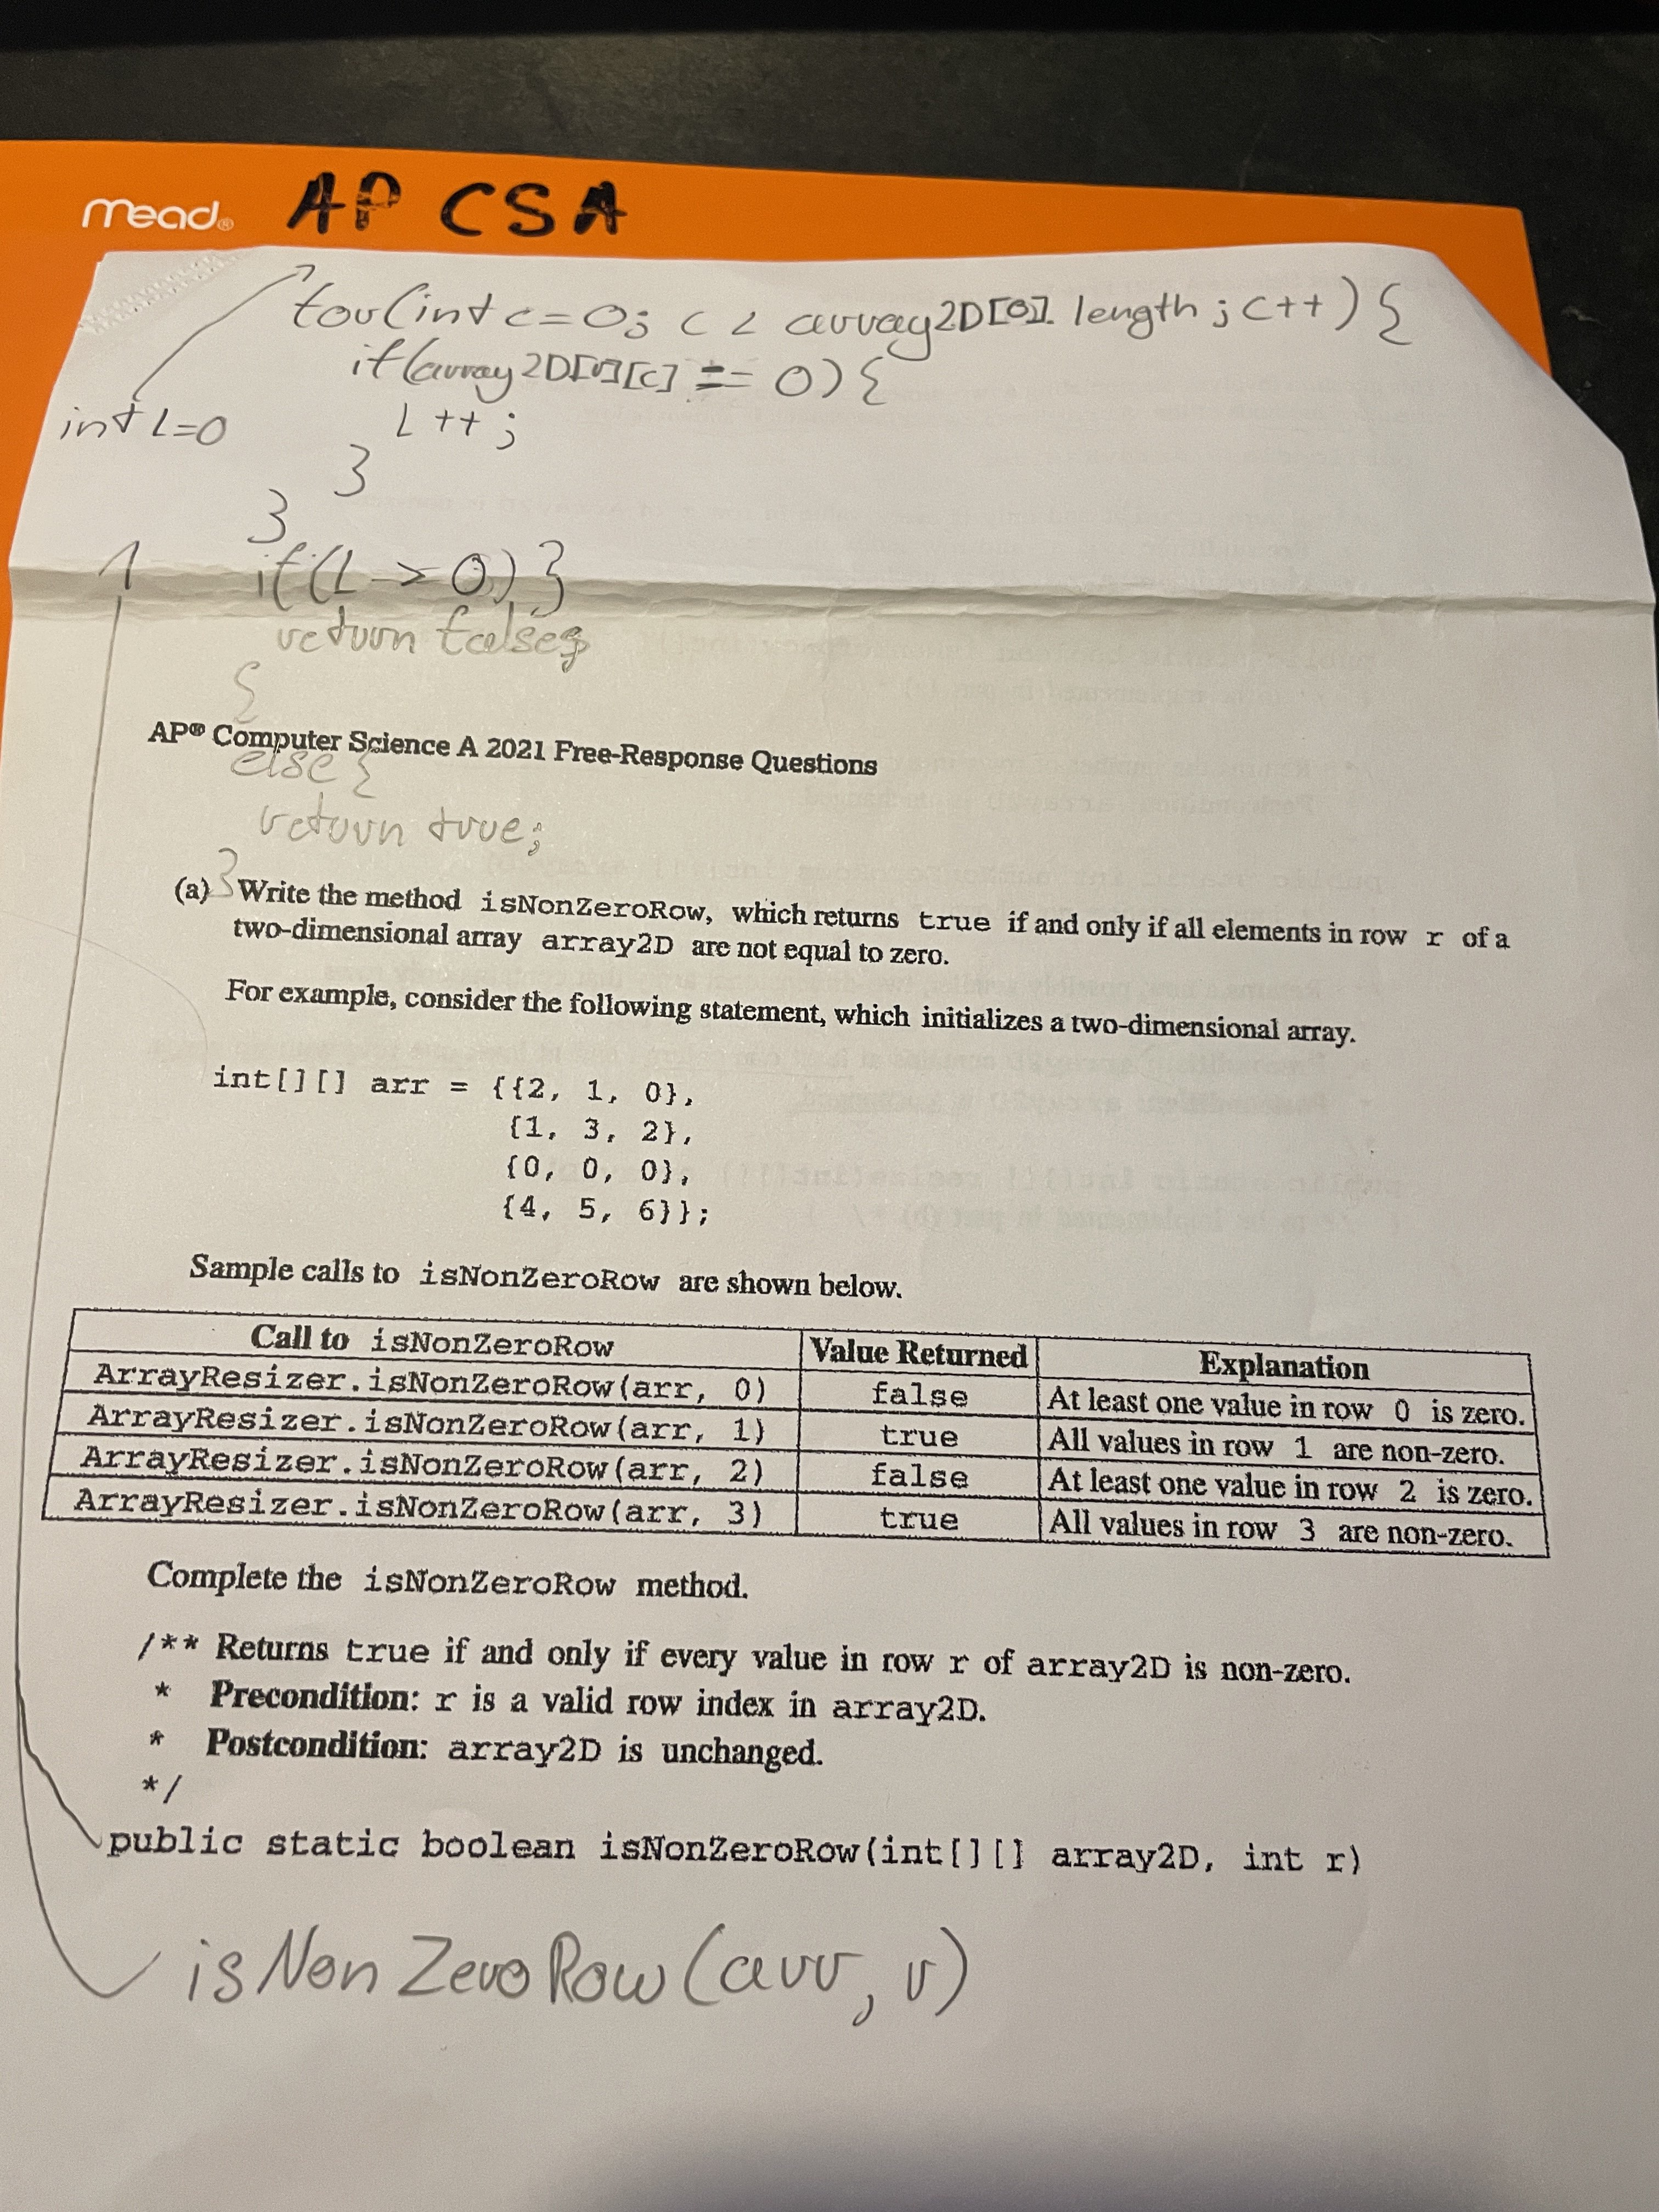 mead® AP CSA
for(int c=0; c < array2D[0].length; c++){
if(array2D[r][c] == 0){
int L=0
L++;
}
}
1 if(L > 0)}
return false;
{
AP® Computer Science A 2021 Free-Response Questions
else{
return true;
}
(a) Write the method isNonZeroRow, which returns true if and only if all elements in row r of a
two-dimensional array array2D are not equal to zero.
For example, consider the following statement, which initializes a two-dimensional array.
int[][] arr = {{2, 1, 0},
{1, 3, 2},
{0, 0, 0},
{4, 5, 6}};
Sample calls to isNonZeroRow are shown below.
Call to isNonZeroRow Value Returned Explanation
ArrayResizer.isNonZeroRow(arr, 0) false At least one value in row 0 is zero.
ArrayResizer.isNonZeroRow(arr, 1) true All values in row 1 are non-zero.
ArrayResizer.isNonZeroRow(arr, 2) false At least one value in row 2 is zero.
ArrayResizer.isNonZeroRow(arr, 3) true All values in row 3 are non-zero.
Complete the isNonZeroRow method.
/** Returns true if and only if every value in row r of array2D is non-zero.
* Precondition: r is a valid row index in array2D.
* Postcondition: array2D is unchanged.
*/
public static boolean isNonZeroRow(int[][] array2D, int r)
isNonZeroRow(arr, r)